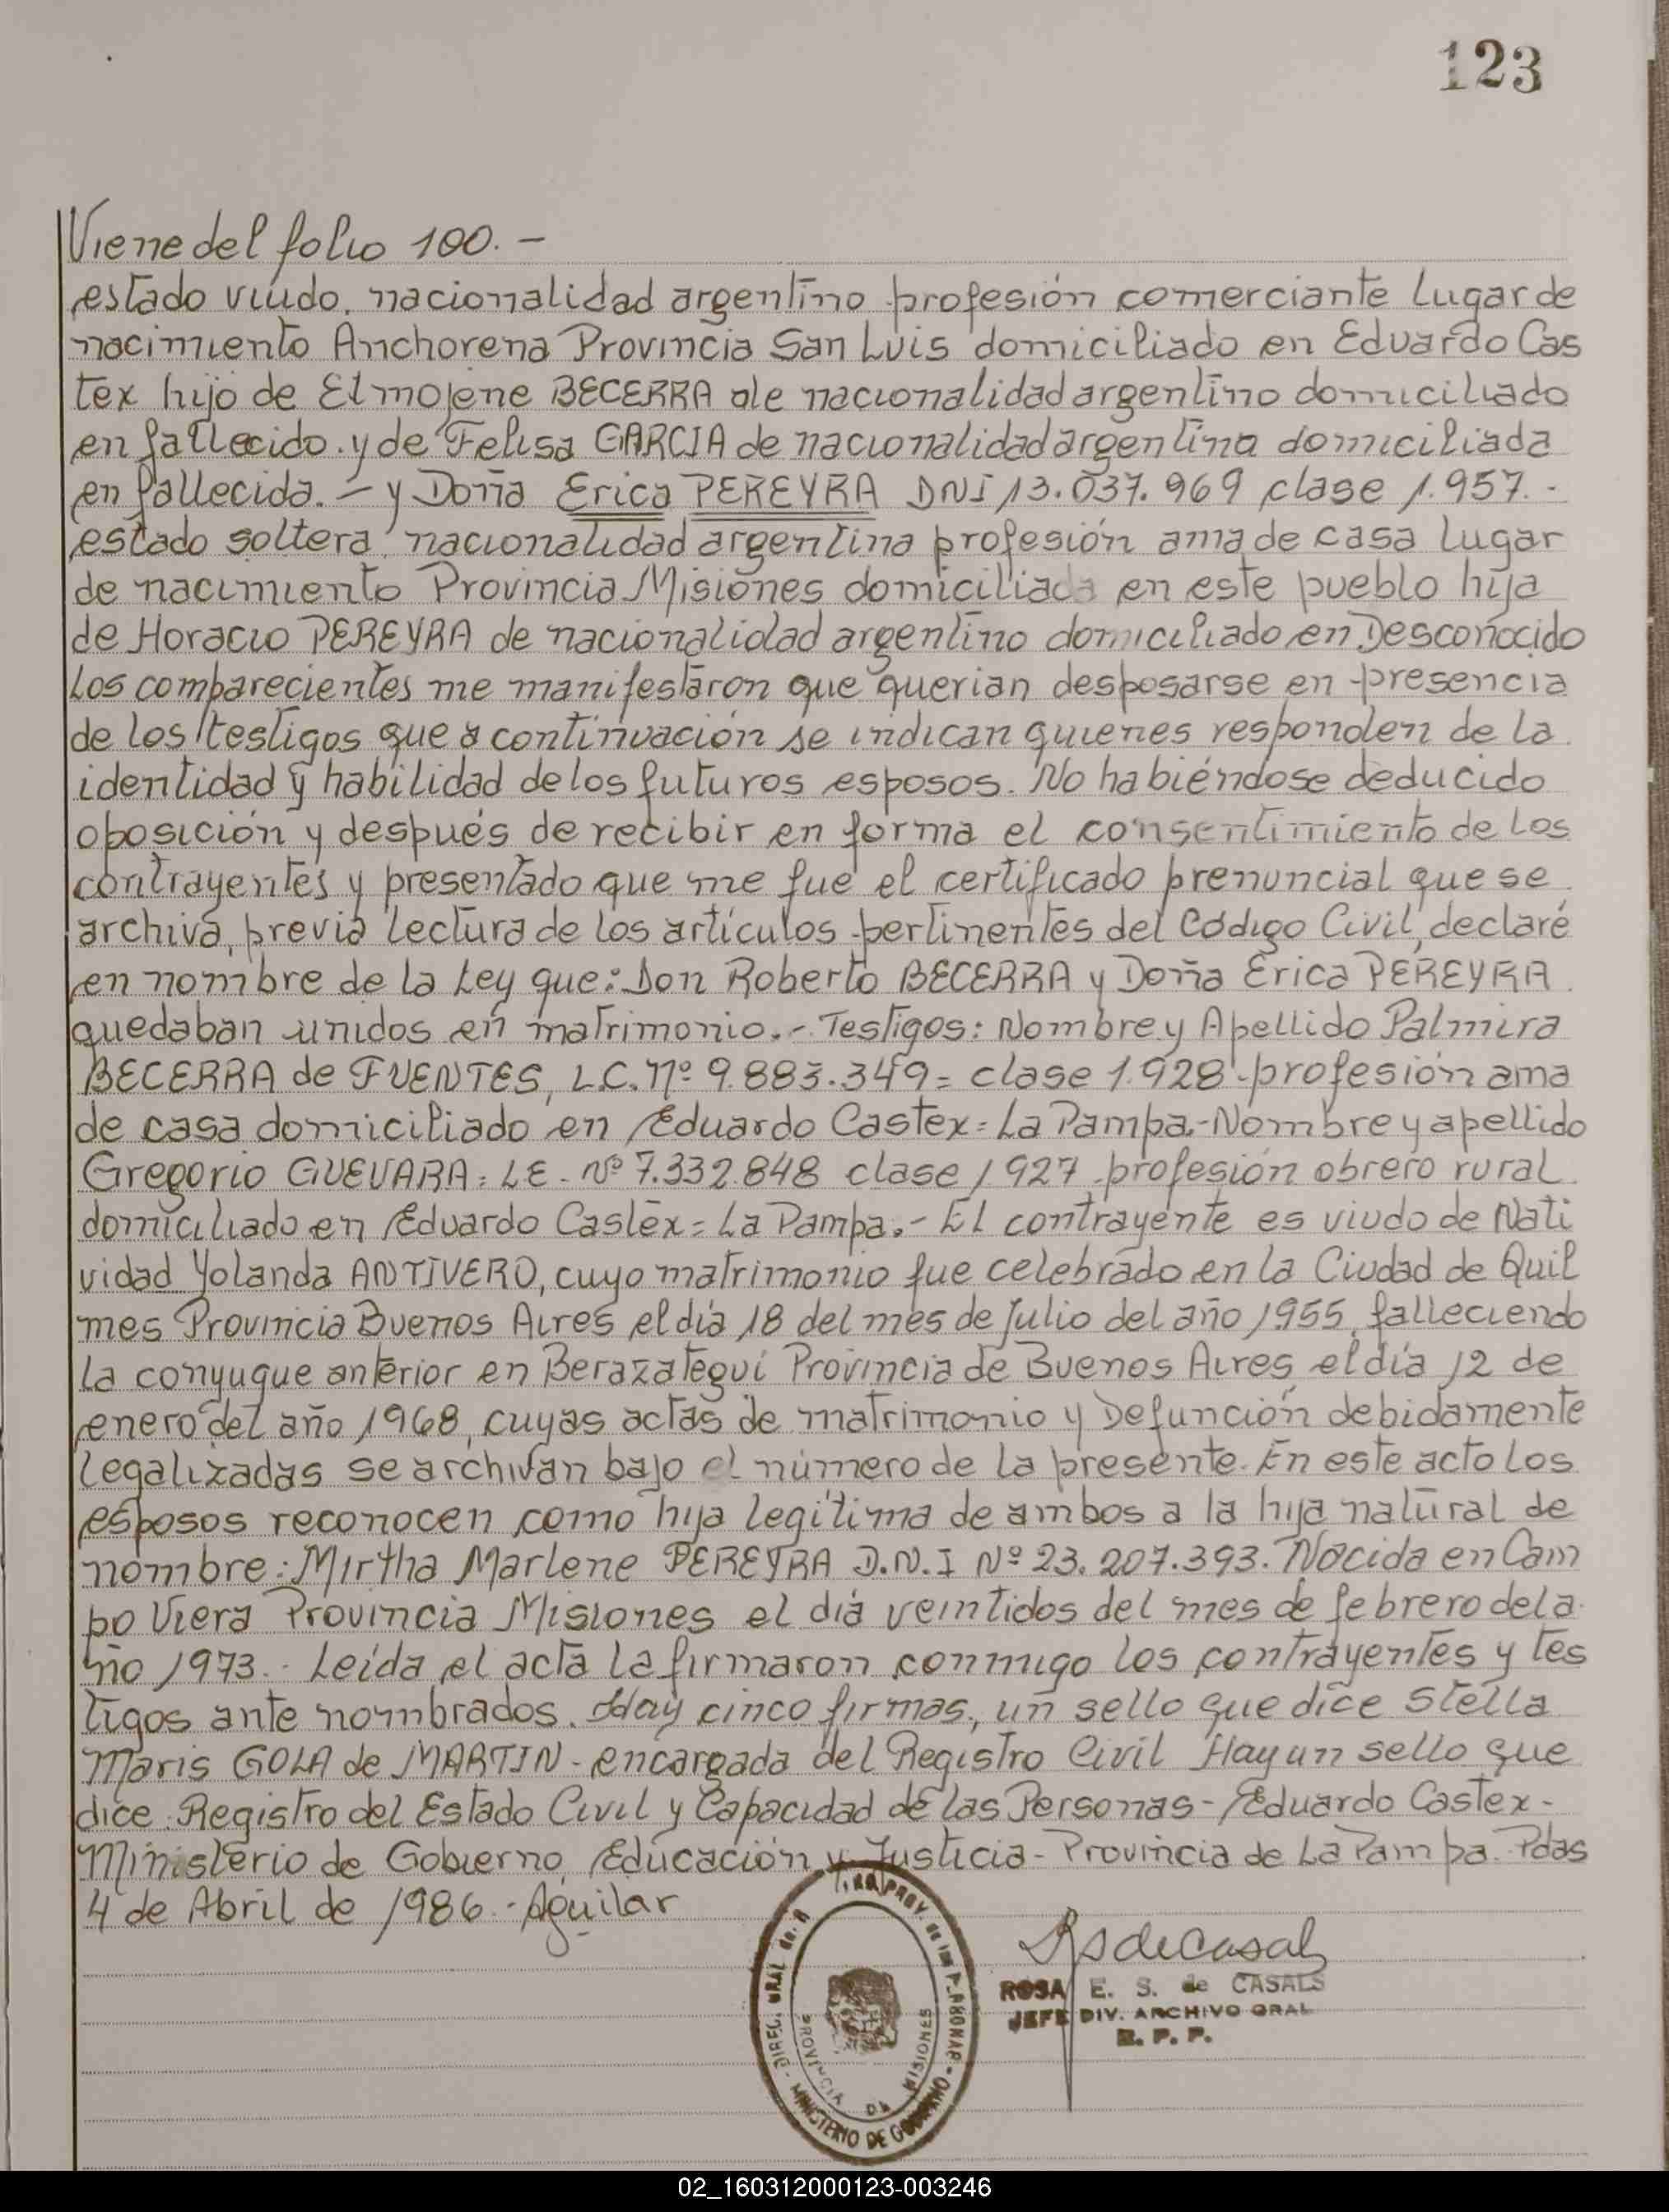 123
Viene del folio 100. -
estado viudo. nacionalidad argentino profesión comerciante lugar de
nacimiento Anchorena Provincia San Luis domiciliado en Eduardo Cas
tex hijo de Elmojene BECERRA de nacionalidad argentino domiciliado
en fallecido. y de Felisa GARCIA de nacionalidad argentina domiciliada
en fallecida. - y Doña Erica PEREYRA DNI 13.037.969 clase 1.957. -
estado soltera nacionalidad argentina profesión ama de casa lugar
de nacimiento Provincia Misiones domiciliada en este pueblo hija
de Horacio PEREYRA de nacionalidad argentino domiciliado en Desconocido
Los comparecientes me manifestaron que querian desposarse en presencia
de los testigos que a continuación se indican quienes responden de la
identidad y habilidad de los futuros esposos. No habiéndose deducido
oposición y después de recibir en forma el consentimiento de los
contrayentes y presentado que me fue el certificado prenuncial que se
archiva, previa lectura de los artículos pertinentes del Código Civil, declaré
en nombre de la Ley que: Don Roberto BECERRA y Doña Erica PEREYRA
quedaban unidos en matrimonio. - Testigos: Nombre y Apellido Palmira
BECERRA de FUENTES, L.C. Nº 9.883.349 = clase 1.928 - profesión ama
de casa domiciliado en Eduardo Castex = La Pampa. - Nombre y apellido
Gregorio GUEVARA = LE - Nº 7.332.848 clase 1927 profesión obrero rural
domiciliado en Eduardo Castex = La Pampa. - El contrayente es viudo de Nati
vidad Yolanda ANTIVERO, cuyo matrimonio fue celebrado en la Ciudad de Quil
mes Provincia Buenos Aires el día 18 del mes de Julio del año 1955, falleciendo
la conyugue anterior en Berazategui Provincia de Buenos Aires, el día 12 de
enero del año 1968, cuyas actas de matrimonio y Defunción debidamente
legalizadas se archivan bajo el número de la presente. En este acto los
esposos reconocen como hija legítima de ambos a la hija natural de
nombre: Mirtha Marlene PEREYRA D.N.I Nº 23.207.393. Nacida en Cam
po Viera Provincia Misiones el día veintidos del mes de febrero del a
ño 1973. - Leída el acta la firmaron conmigo los contrayentes y tes
tigos ante nombrados. Hay cinco firmas, un sello que dice Stella
Maris GOLA de MARTIN - encargada del Registro Civil Hay un sello que
dice: Registro del Estado Civil y Capacidad de las Personas - Eduardo Castex -
Ministerio de Gobierno, Educación y Justicia - Provincia de La Pampa. Pdas
4 de Abril de 1986. - Aguilar
ROSA E. S. de CASALS
JEFE DIV. ARCHIVO GRAL
R. P. P.
PROVINCIA DE MISIONES
MINISTERIO DE GOBIERNO
02_160312000123-003246